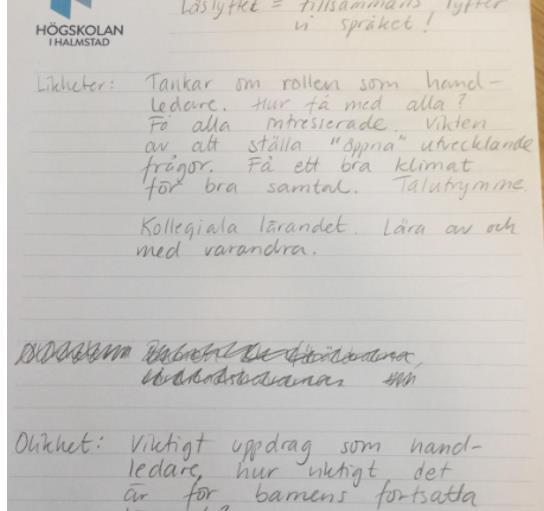 HÖGSKOLAN
I HALMSTAD
Läslyftet = tillsammans lyfter
vi språket!
Likheter: Tankar om rollen som hand-
ledare. Hur få med alla?
Få alla intresserade. Vikten
av att ställa "öppna" utvecklande
frågor. Få ett bra klimat
för bra samtal. Talutrymme.
Kollegiala lärandet. Lära av och
med varandra.
Olikhet: Viktigt uppdrag som hand-
ledare, hur viktigt det
är för barnens fortsatta